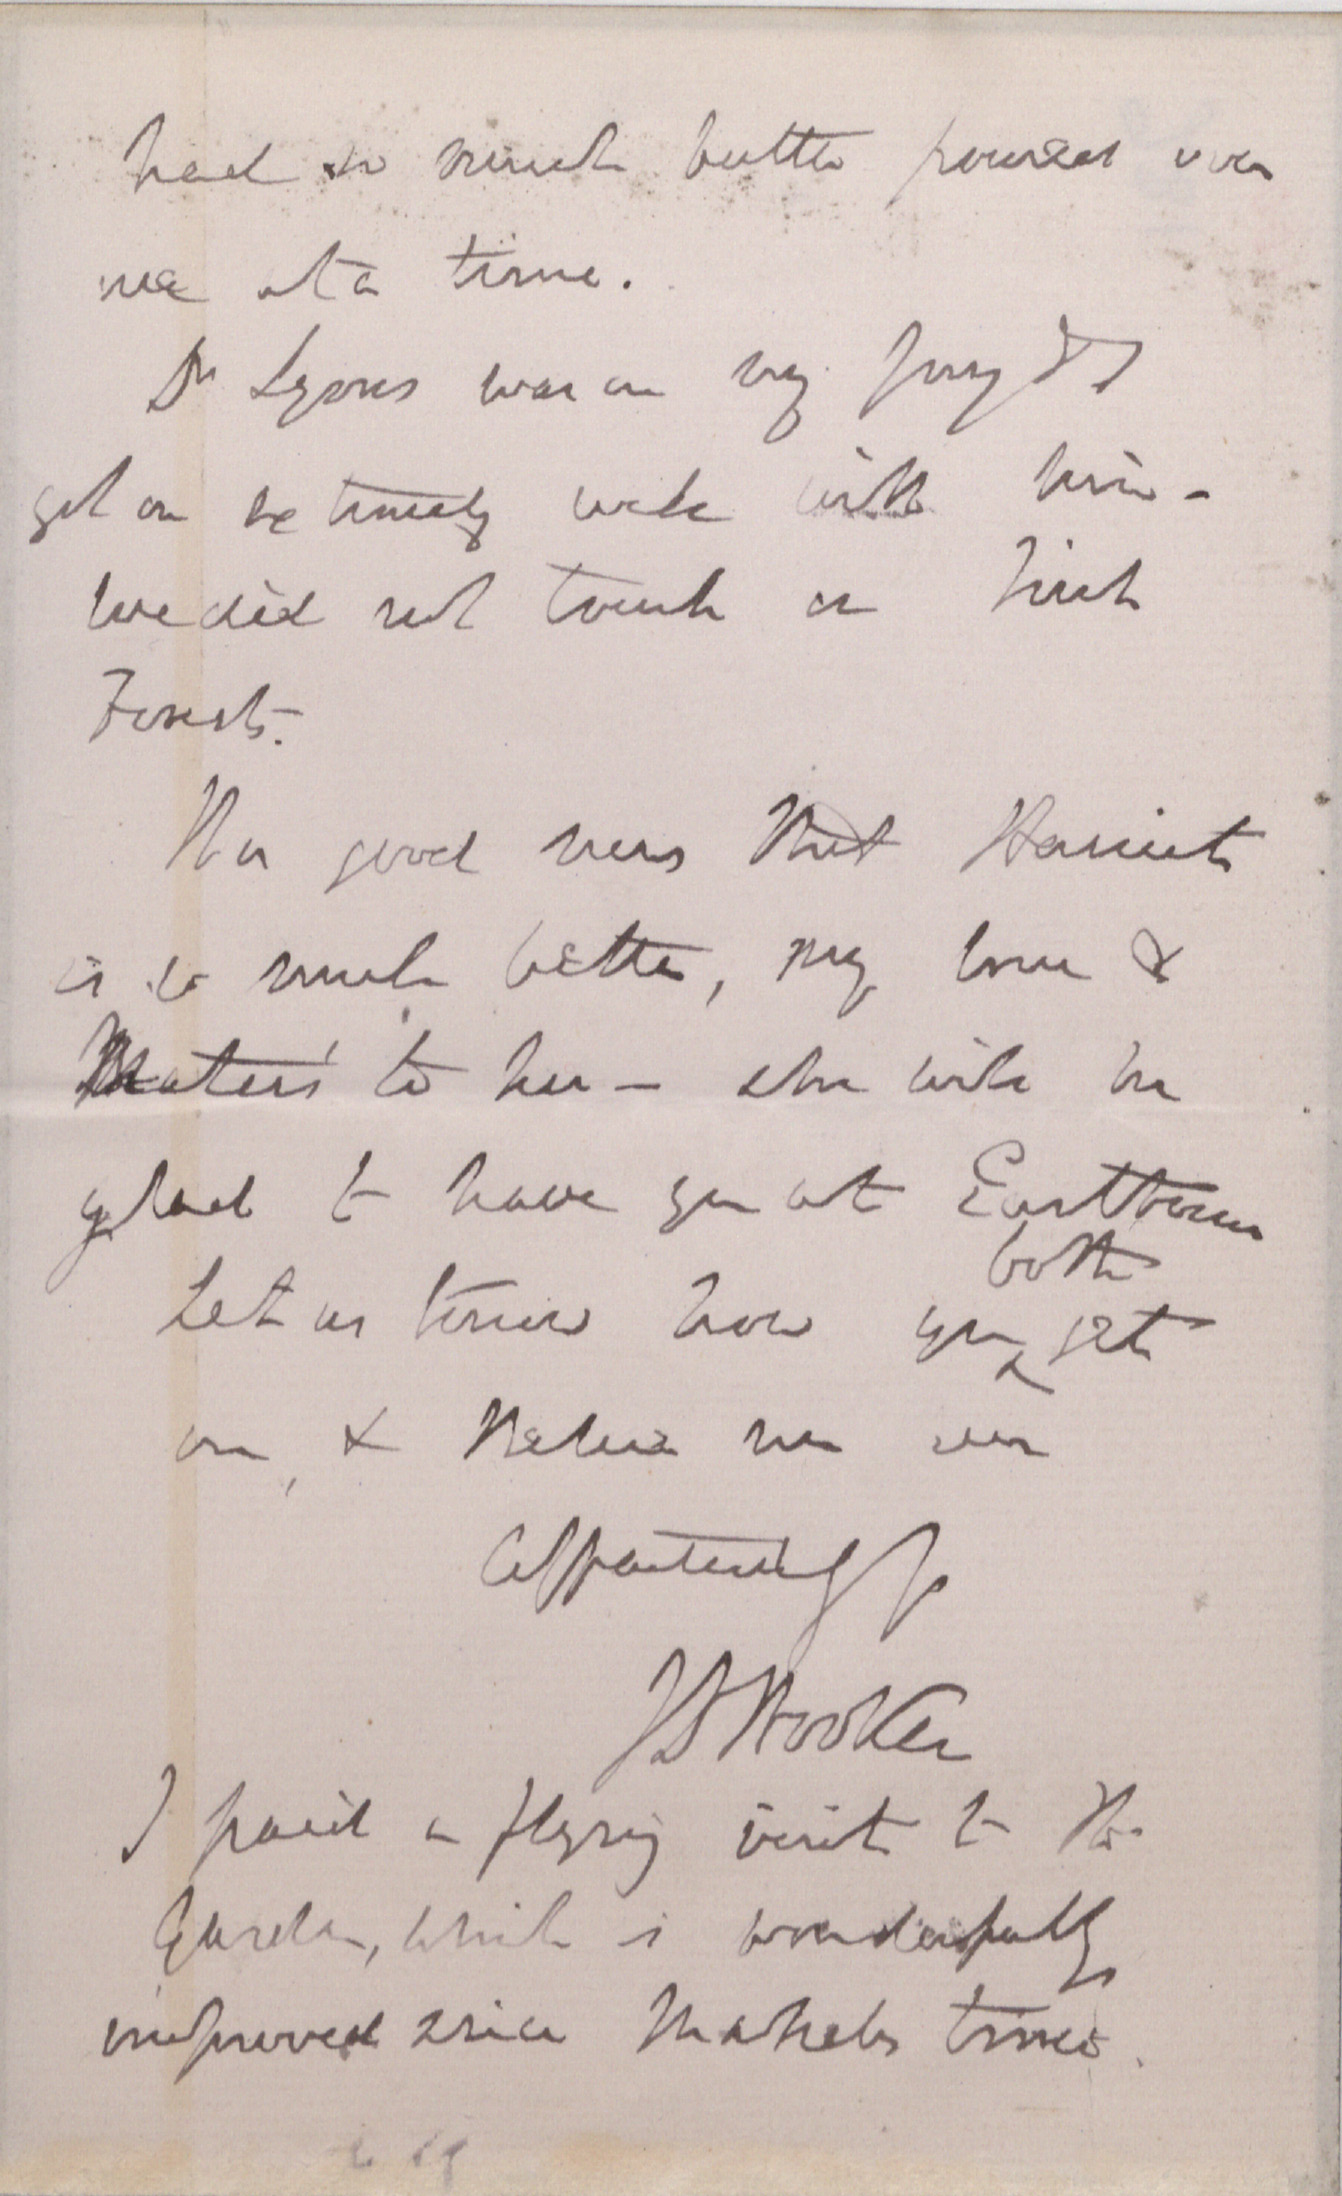 had so much butter poured over
me at a time.
Dr Lyons was on my Jury & I
got on extremely well with him -
we did not touch on Irish
Forests.
The good news that Harriet
is so much better, my love &
to her - she will be
glad to have you at Eastbourne
Let us know how you both get
on, & Believe me ever
Affectionately yr
J D Hooker
I paid a flying visit to the
Garden, which is wonderfully
improved since McNabs time.